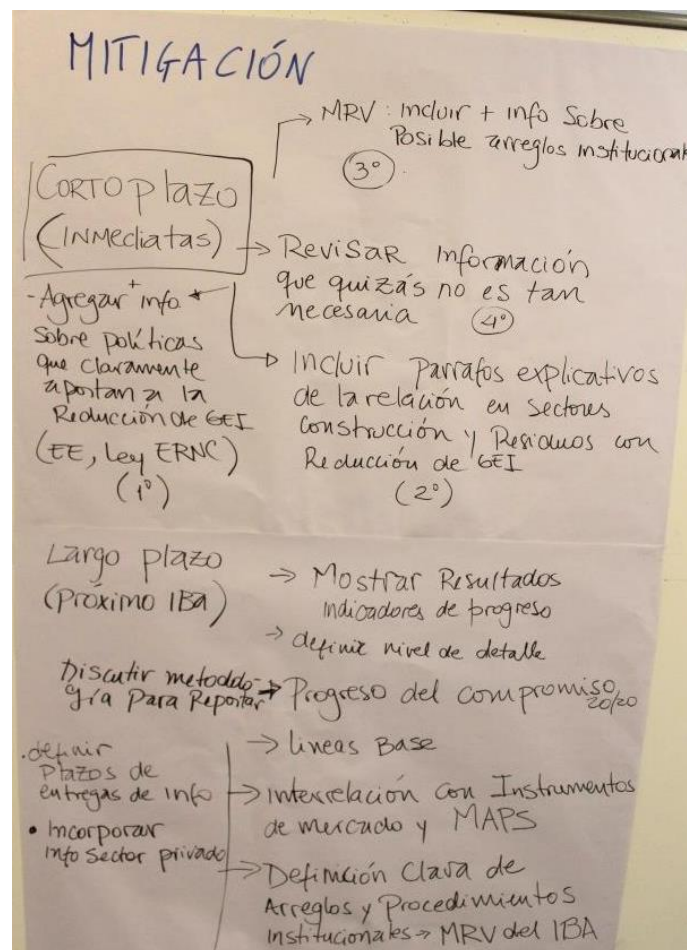 MITIGACIÓN
CORTO plazo
(INMediatas)
→ MRV: incluir + info Sobre
Posible arreglos institucional
(3°).
→ Revisar información
que quizás no es tan
necesaria (4°)
- Agregar + info
Sobre políticas
que claramente
aportan a la
Reducción de GEI
(EE, Ley ERNC)
(1°)
→ Incluir parrafos explicativos
de la relación en sectores
construcción y Residuos con
Reducción de GEI
(2°)
Largo plazo
(Próximo IBA)
→ Mostrar Resultados
indicadores de progreso
→ definir nivel de detalle
Discutir metodolo-
gía Para Reportar → Progreso del compromiso
20/20
→ lineas Base
.definir
Plazos de
entregas de info
• Incorporar
info Sector privado
→ interrelación con Instrumentos
de mercado y MAPS
→ Definición Clara de
Arreglos y Procedimientos
Institucionales → MRV del IBA